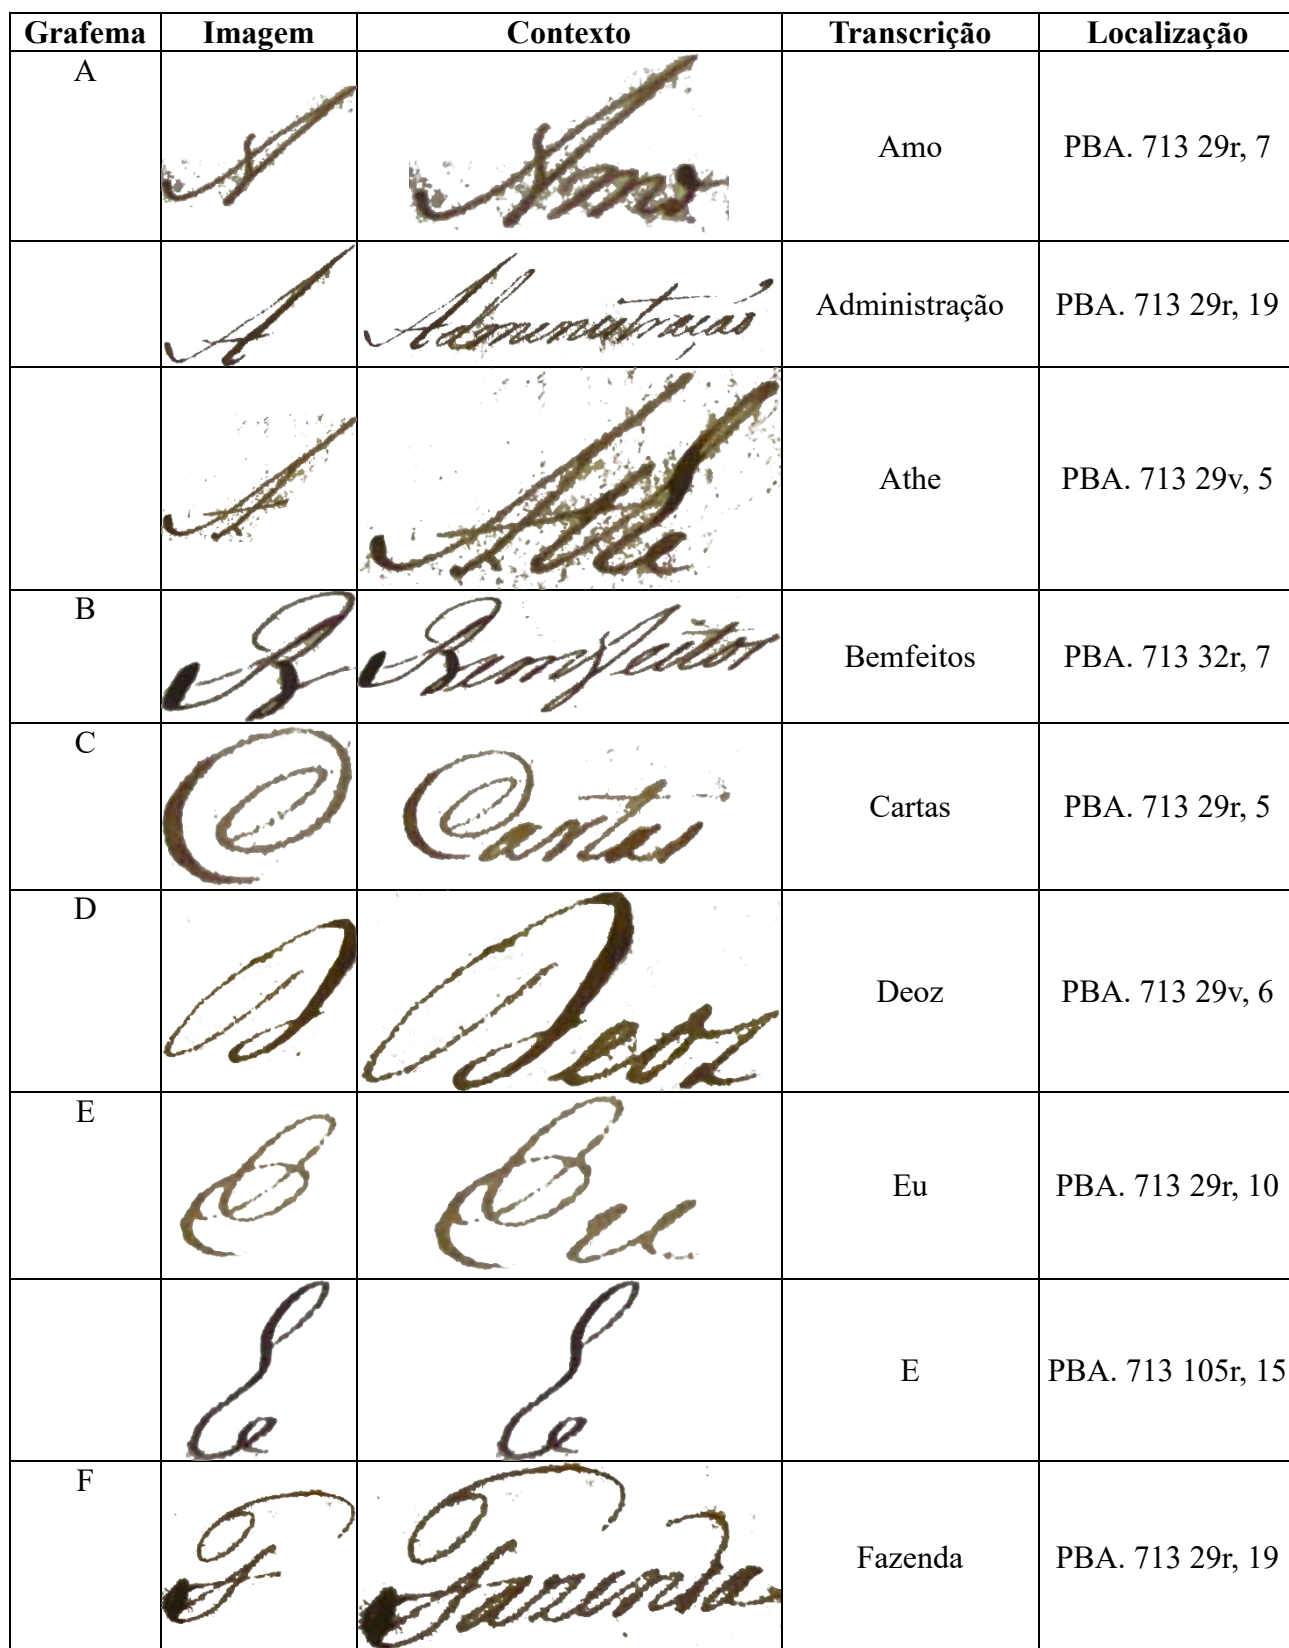 Grafema Imagem Contexto Transcrição Localização
A Amo Amo PBA. 713 29r, 7
A Administração Administração PBA. 713 29r, 19
A Athe Athe PBA. 713 29v, 5
B B Bemfeitos Bemfeitos PBA. 713 32r, 7
C C Cartas Cartas PBA. 713 29r, 5
D D Deoz Deoz PBA. 713 29v, 6
E E Eu Eu PBA. 713 29r, 10
E E E PBA. 713 105r, 15
F F Fazenda Fazenda PBA. 713 29r, 19